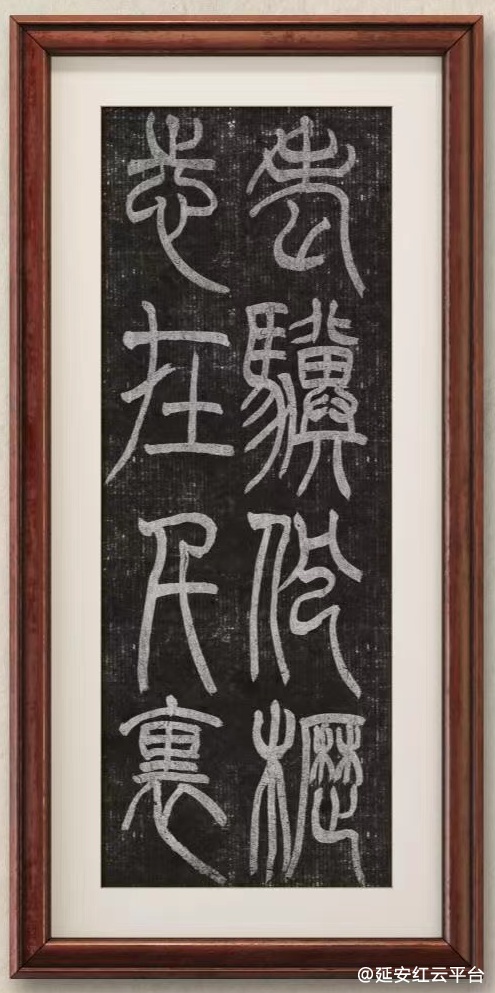 老驥伏櫪
志在千裏
@延安红云平台